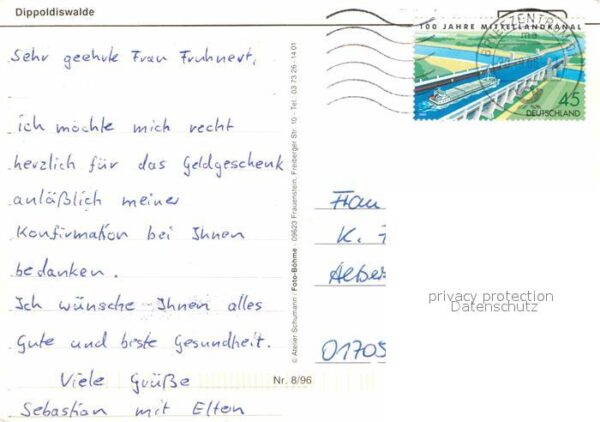 Dippoldiswalde
Sehr geehrte Frau Fruhnert,
ich möchte mich recht
herzlich für das Geldgeschenk
anläßlich meiner
Konfirmation bei Ihnen
bedanken.
Ich wünsche Ihnen alles
Gute und beste Gesundheit.
Viele Grüße
Sebastian mit Eltern
© Atelier Schumann / Foto-Böhme · 09623 Frauenstein, Freiberger Str. 10 · Tel. 03 73 26 - 14 01
Nr. 8/96
100 JAHRE MITTELLANDKANAL
BRIEFZENTRUM
45
DEUTSCHLAND
Frau
K.
Alber
01705
privacy protection
Datenschutz